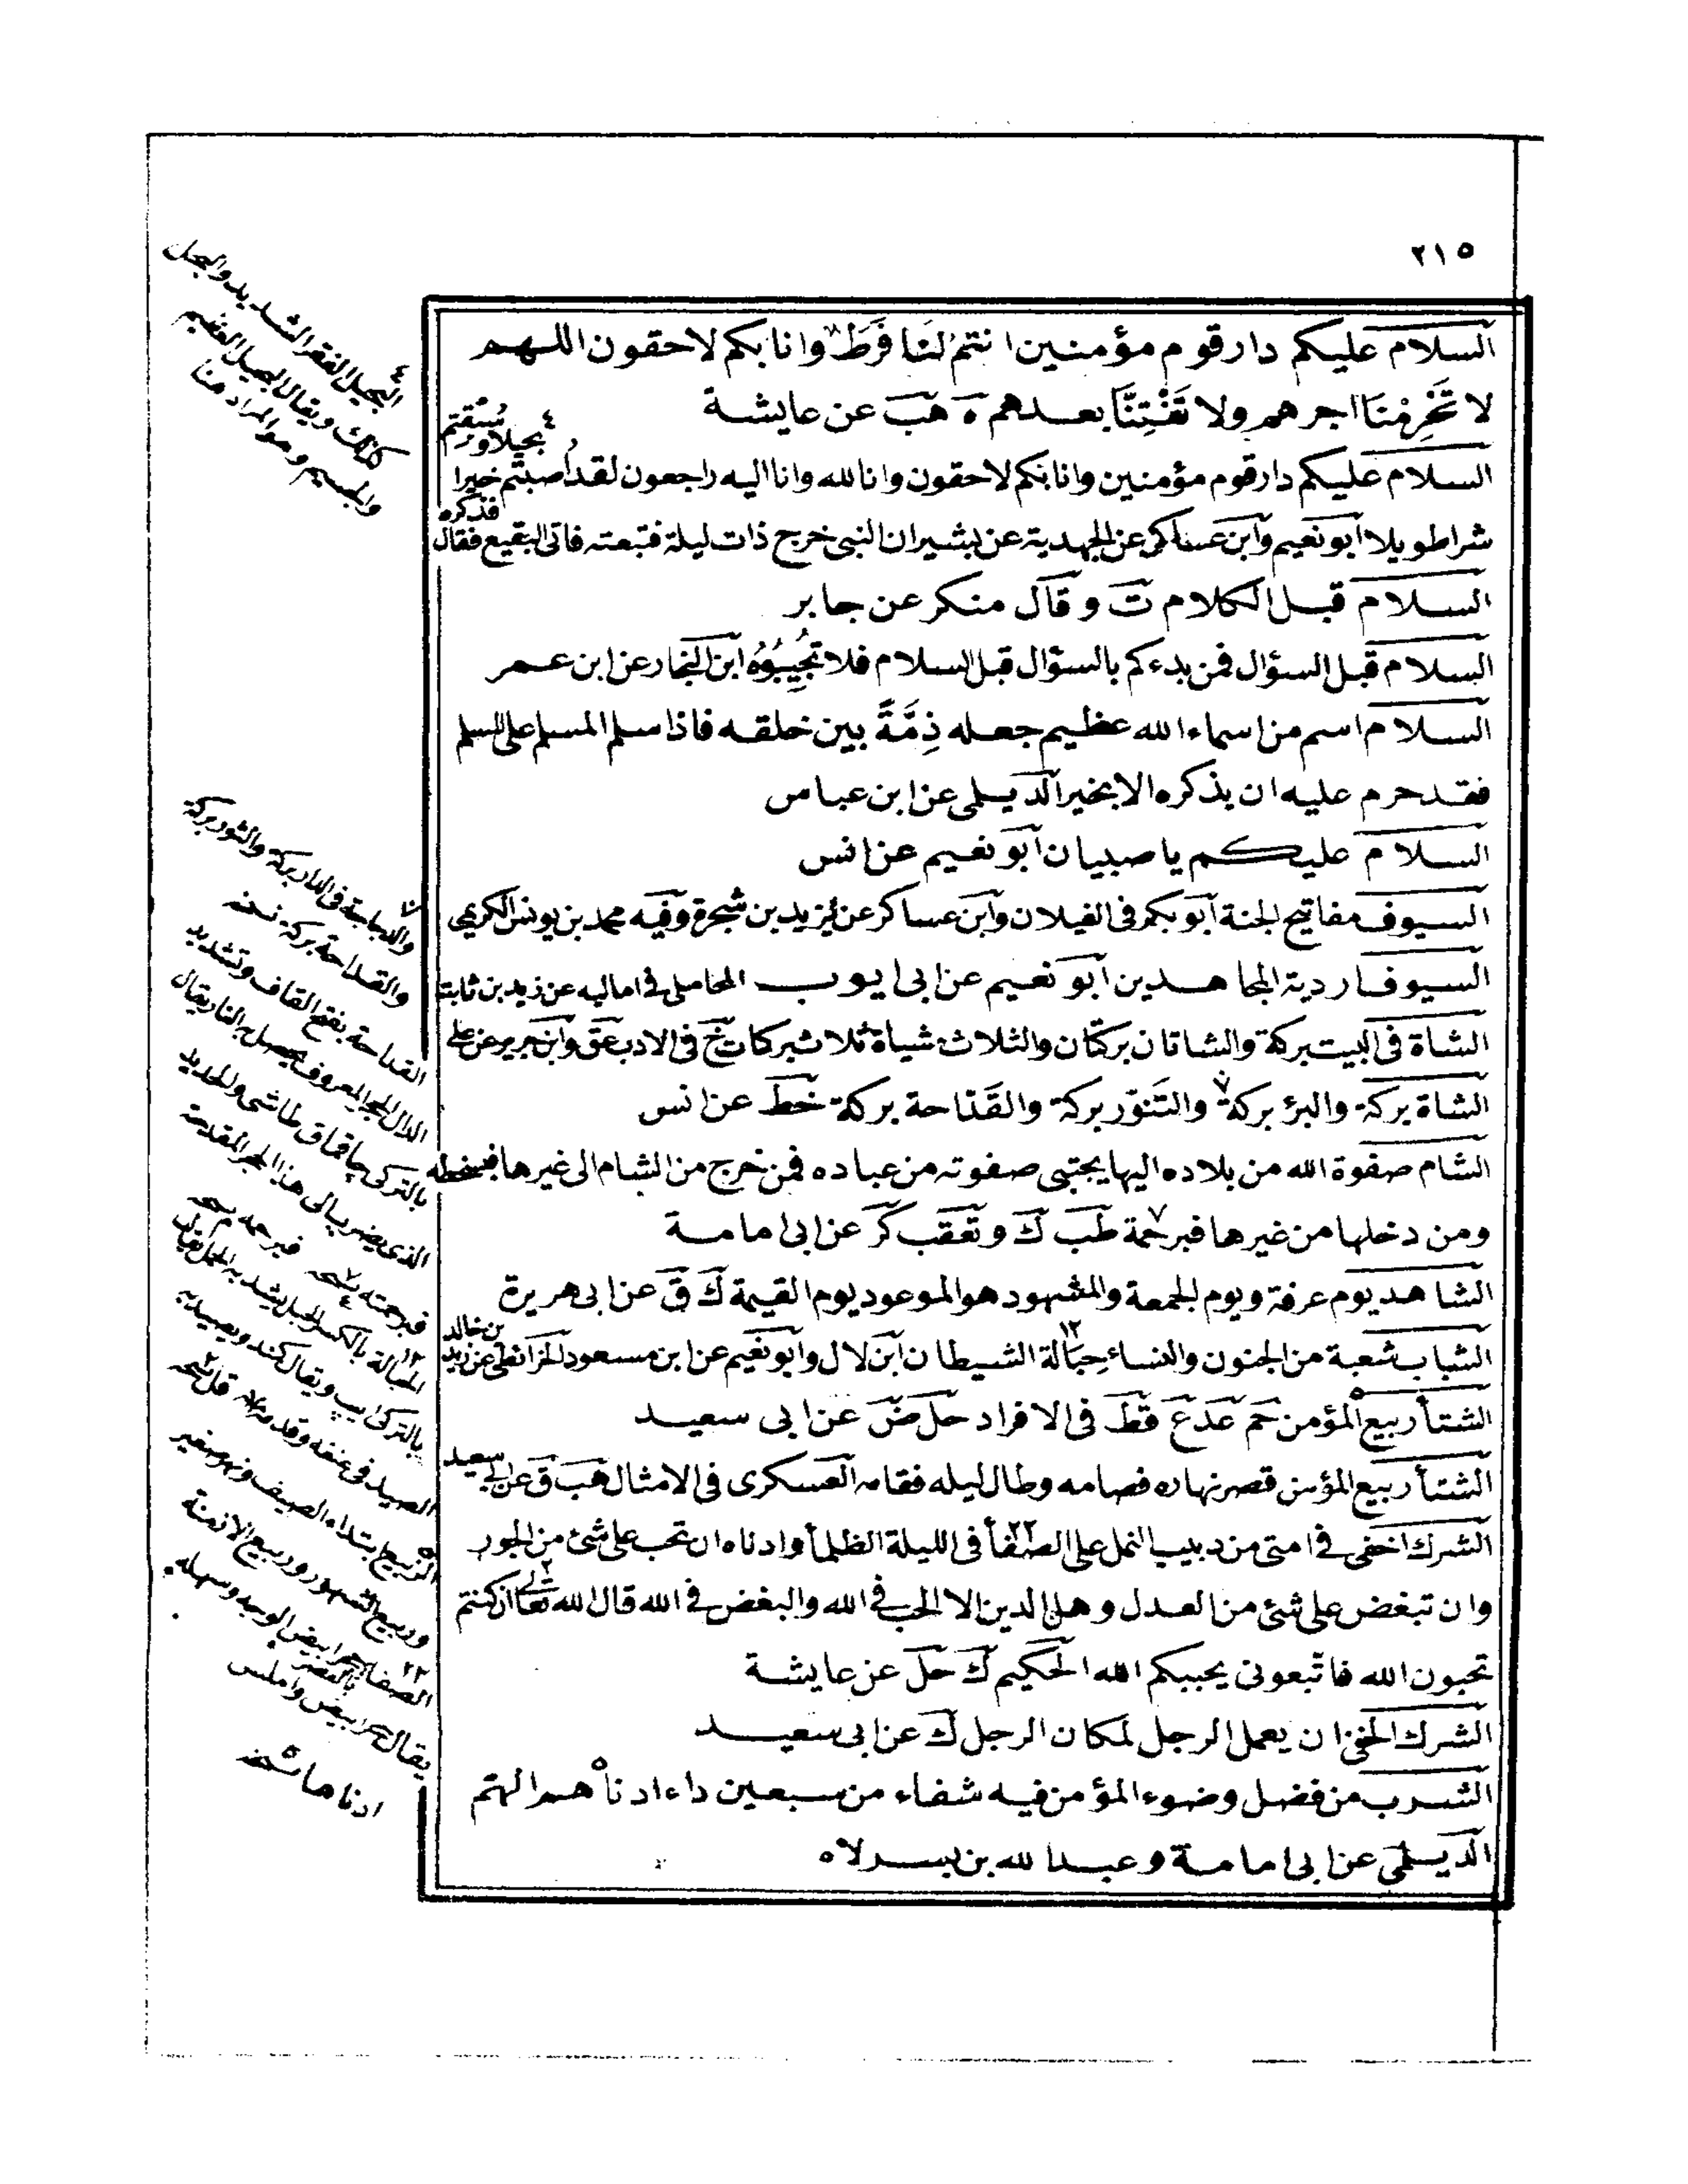 ٢١٥
السلام عليكم دار قوم مؤمنين انتم لنا فرط وانا بكم لاحقون اللهم
لا تَحْرِمْنَا اجرهم ولا تَفْتِنَّا بعدهم ه هب عن عايشة
بجيلا وسُبِقتم
السلام عليكم دار قوم مؤمنين وانا بكم لاحقون وانا لله وانا اليه راجعون لقد اصبتم خيرا
شرا طويلا ابو نعيم وابن عساكر عن الجهدمة عن بشير ان النبى خرج ذات ليلة فتبعته فاتى البقيع فقال فذكره
السلام قبل الكلام ت وقال منكر عن جابر
السلام قبل السؤال فمن بدءكم بالسؤال قبل السلام فلا تُجِيبُوُه ابن النجار عن ابن عمر
السلام اسم من اسماء الله عظيم جعله ذِمَّةً بين خلقه فاذا سلم المسلم على المسلم
فقد حرم عليه ان يذكره الا بخير الديلمى عن ابن عباس
السلام عليكم يا صبيان ابو نعيم عن انس
السيوف مفاتيح الجنة ابو بكر فى الغيلان وابن عساكر عن يزيد بن شجرة وفيه محمد بن يونس الكريمى
السيوف اردية المجاهدين ابو نعيم عن ابى ايوب المحاملى فى اماليه عن زيد بن ثابت
الشاة فى البيت بركة والشاتان بركتان والثلاث شياة ثلاث بركات خ فى الادب عق وابن جرير عن على
الشاة بركة والبئر بركة والتَنّور بركة والقَدّاحة بركة خط عن انس
الشام صفوة الله من بلاده اليها يجتبى صفوته من عباده فمن خرج من الشام الى غيرها فبسخطه
ومن دخلها من غيرها فبرحمة طب ك وتعقب كر عن ابى امامة
الشاهد يوم عرفة ويوم الجمعة والمشهود هو الموعود يوم القيمة ك ق عن ابى هريرة
الشباب شعبة من الجنون والنساء حِبَالة الشيطان ابن لال وابو نعيم عن ابن مسعود الخرائطى عن زيد بن خالد
الشتأ ربيع المؤمن حم ع عد قط فى الافراد حل ض عن ابى سعيد
الشتأ ربيع المؤمن قصر نهاره فصامه وطال ليله فقامه العسكرى فى الامثال هب ق عن ابى سعيد
الشرك اخفى فى امتى من دبيب النمل على الصفأ فى الليلة الظلمأ وادناه ان تحب على شئ من الجور
وان تبغض على شئ من العدل وهل الدين الا الحب فى الله والبغض فى الله قال الله تعالى ان كنتم
تحبون الله فاتبعونى يحببكم الله الحكيم ك حل عن عايشة
الشرك الخفى ان يعمل الرجل لمكان الرجل ك عن ابى سعيد
الشرب من فضل وضوء المؤمن فيه شفاء من سبعين داء ادناه الهم
الديلمى عن ابى امامة وعبد الله بن بسر لاه
٤ البجيل الفقر الشديد والبجل
كذلك ويقال البجيل العظيم
والجسيم وهو المراد هنا
والدجاجة فى الدار بركة والتنور بركة
والقداحة بركة نسخه
القداحة بفتح القاف وتشديد
الدال الحجر المعروف يحصل به النار يقال
بالتركى چاقماق طاشى والحديد
الذى يضرب الى هذا الحجر المقدحة
فبرحمته نسخه فبرحمه نسخه
١٢ الحبالة بالكسر الحبل يشد به الحمل يقال
بالتركى ايپ ويقال كند ويصيد به
الصيد فى عنقه وقدمه قل نسخه
٥ الربيع ابتداء الصيف ونهر صغير
وربيع الشهور وربيع الازمنة
٢٢ الصفا بالقصر حجر ابيض الوجه وسهله
يقال حجر ابيض واملس
ادناها نسخه